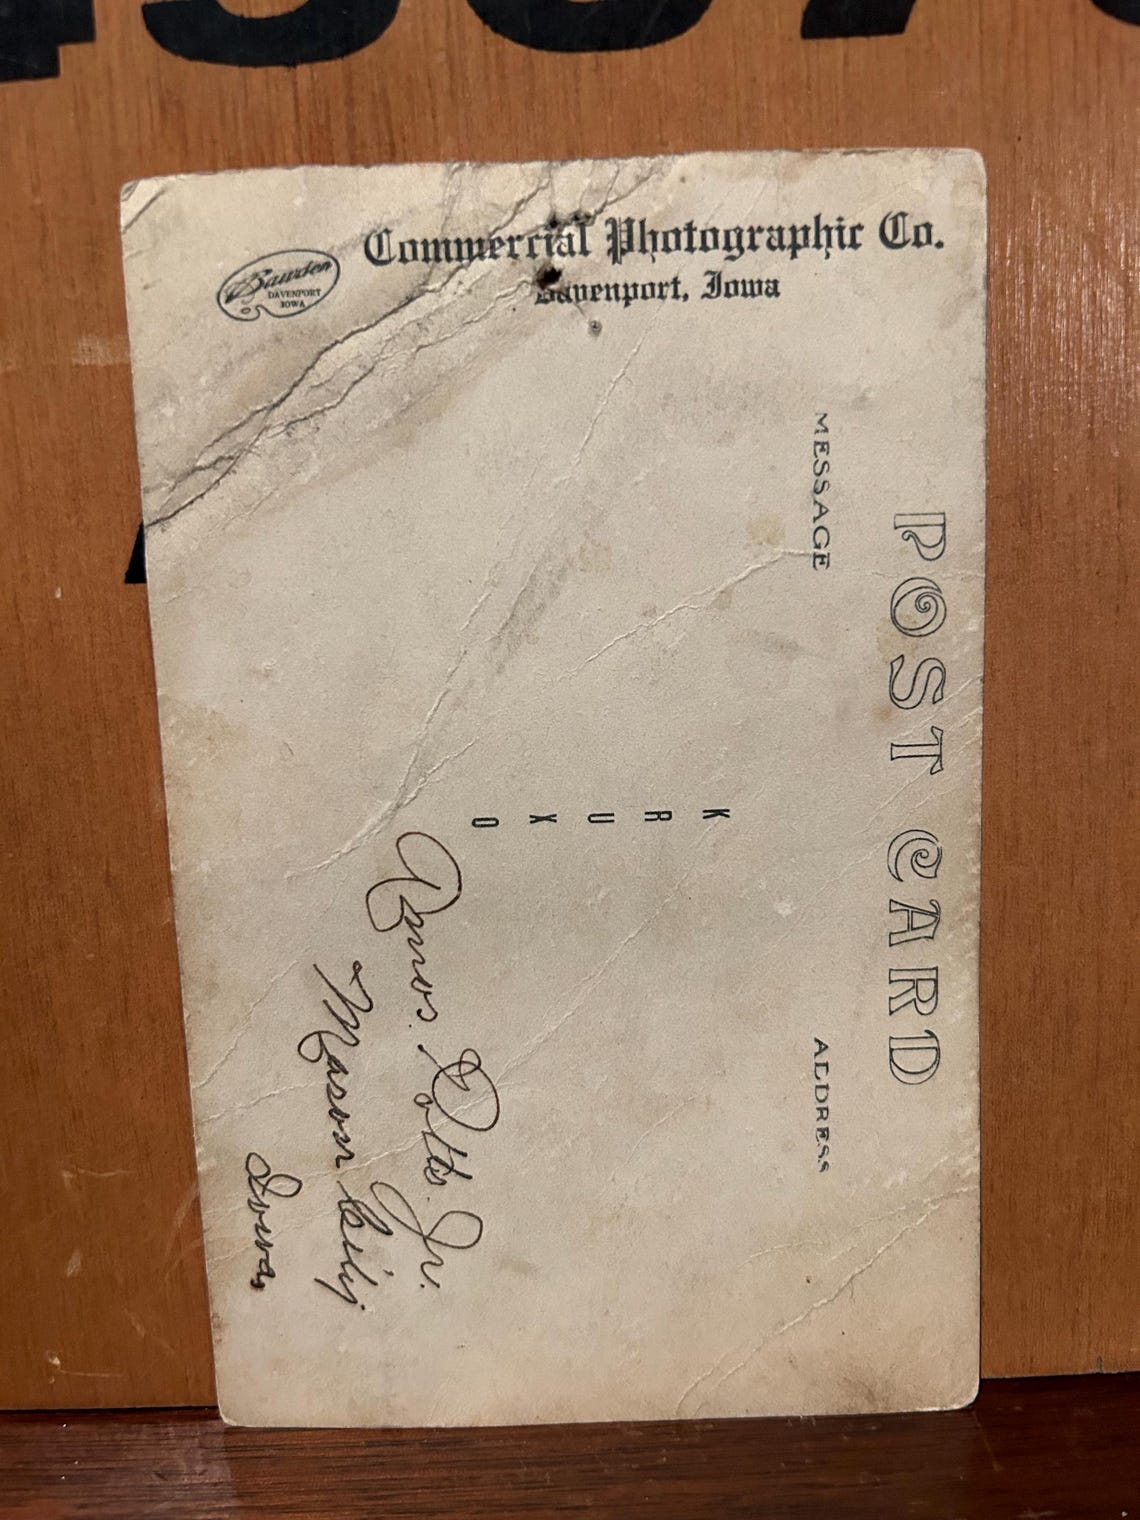 Commercial Photographic Co.
Davenport, Iowa
Bawden
DAVENPORT
IOWA
POST CARD
MESSAGE
ADDRESS
KRUXO
Amos. Potts. Jr.
Mason City
Iowa